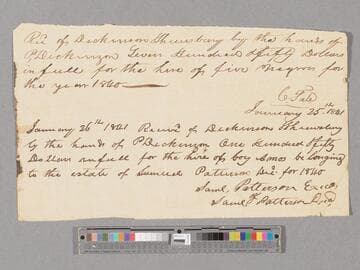 Rec of Dickinson & Shrewsbury by the hands of
P. Dickinson Seven Hundred & fifty Dollars
in full for the hire of five negros for
the year 1840
January 25th 1841
January 26th 1841 Receivd of Dickinson & Shrewsbury
by the hands of P. Dickinson One Hundred & fifty
Dollars in full for the hire of boy Amos belonging
to the estate of Samuel Patterson Decd for 1840
Saml Patterson
Saml Patterson